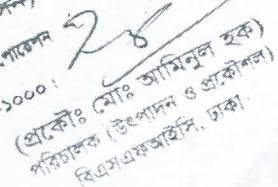 -১০০০।
(প্রকৌঃ মোঃ আমিনুল হক)
পরিচালক (উৎপাদন ও প্রকৌশল)
বিএসএফআইসি, ঢাকা।